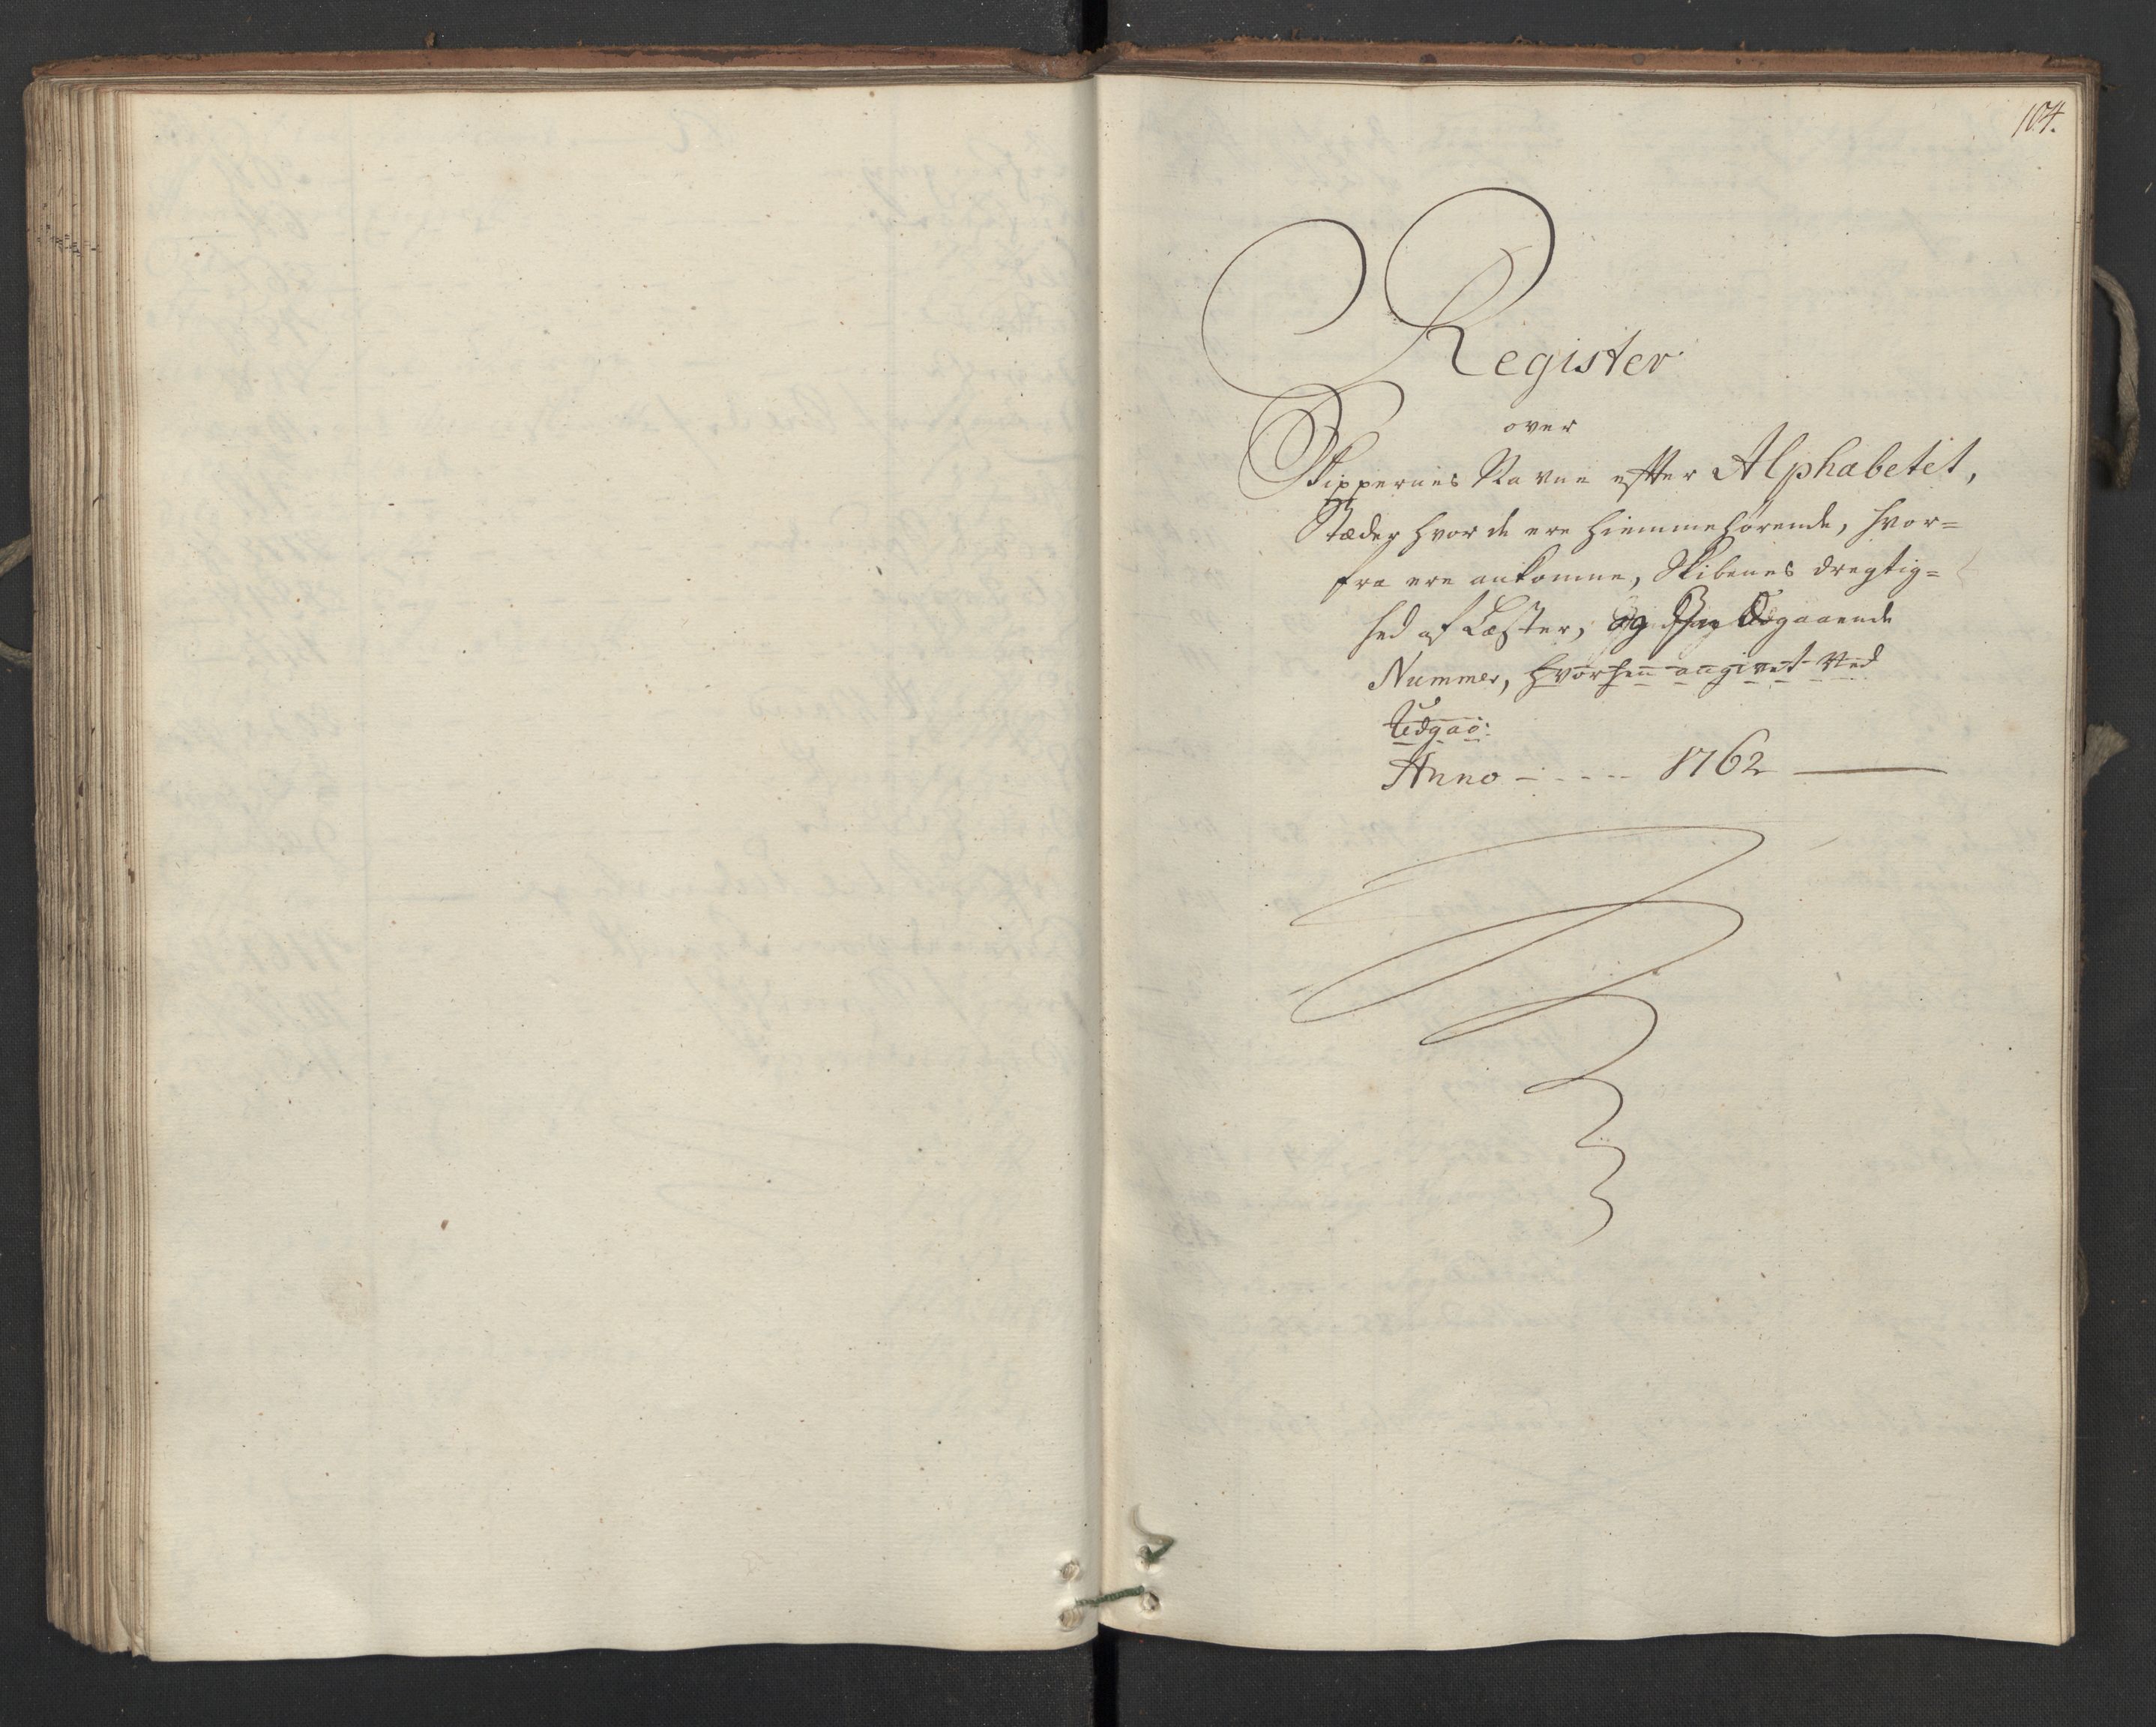 104.
Register
over
Skippernes Navne efter Alphabetet,
Stæder hvor de ere hiemmehørende, hvor=
fra ere ankomne, Skibenes dregtig=
hed af Læster, og gaaende
Nummer, hvorhen angivet ved
Udgaa:
Anno - - - - - 1762